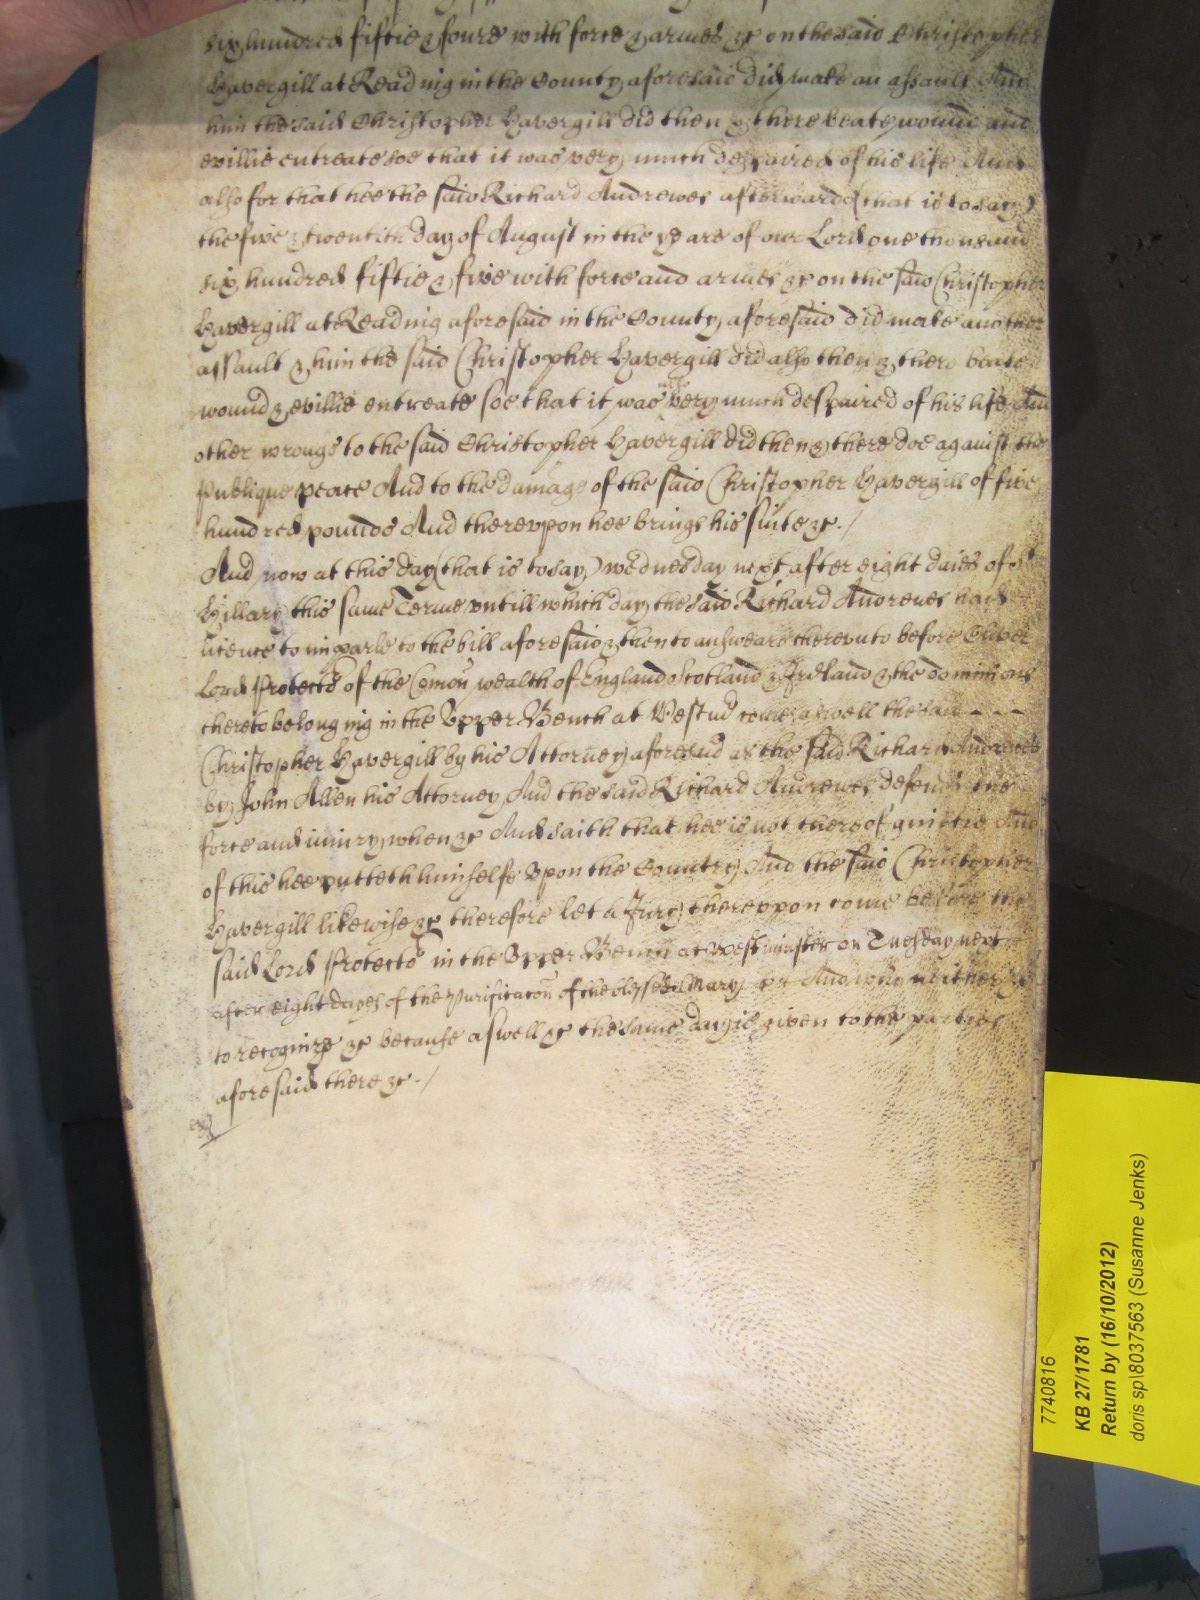 six hundred fiftie & foure with force & armes &c on the said Christopher
Havergill at Reading in the County aforesaid did make an assault And
him the said Christopher Havergill did then & there beate wound and
evillie entreate soe that it was very much despaired of his life And
also for that hee the said Richard Andrewes afterwards (that is to say)
the five & twentith day of August in the yeare of our Lord one thousand
six hundred fiftie & five with force and armes &c on the said Christopher
Havergill at Reading aforesaid in the County aforesaid did make another
assault & him the said Christopher Havergill did also then & there beate
wound & evillie entreate soe that it was very much despaired of his life And
other wrongs to the said Christopher Havergill did then & there doe against the
Publique peace And to the damage of the said Christopher Havergill of five
hundred pounds And therevpon hee brings his suite &c. /
And now at this day (that is to say) wednesday next after eight daies of St
Hillary this same Terme vntill which day the said Richard Andrewes had
licence to imparle to the bill aforesaid & then to answeare therevnto before Oliver
Lord Protector of the Comon wealth of England Scotland & Ireland & the dominions
thereto belonging in the Vpper Bench at Westm comes aswell the said - - -
Christopher Havergill by his Attorney aforesaid as the said Richard Andrewes
by John Allen his Attorney And the said Richard Andrewes defends the
force and iniury when &c And saith that hee is not thereof guiltie And
of this hee putteth himselfe Vpon the Country And the said Christopher
Havergill likewise &c therefore let a Jury therevpon come before the
said Lord Protector in the Vpper Bench at Westminster on Tuesday next
after eight dayes of the Purificacon of the blessed Mary And who neither &c
to recognize &c because aswell &c the same day is given to the parties
aforesaid there &c. /
7740816
KB 27/1781
Return by (16/10/2012)
doris sp\8037563 (Susanne Jenks)